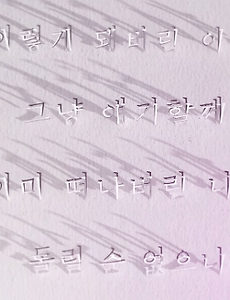 이렇게 되버린 이
그냥 얘기할께
이미 떠나버린 너
돌릴 수 없으니